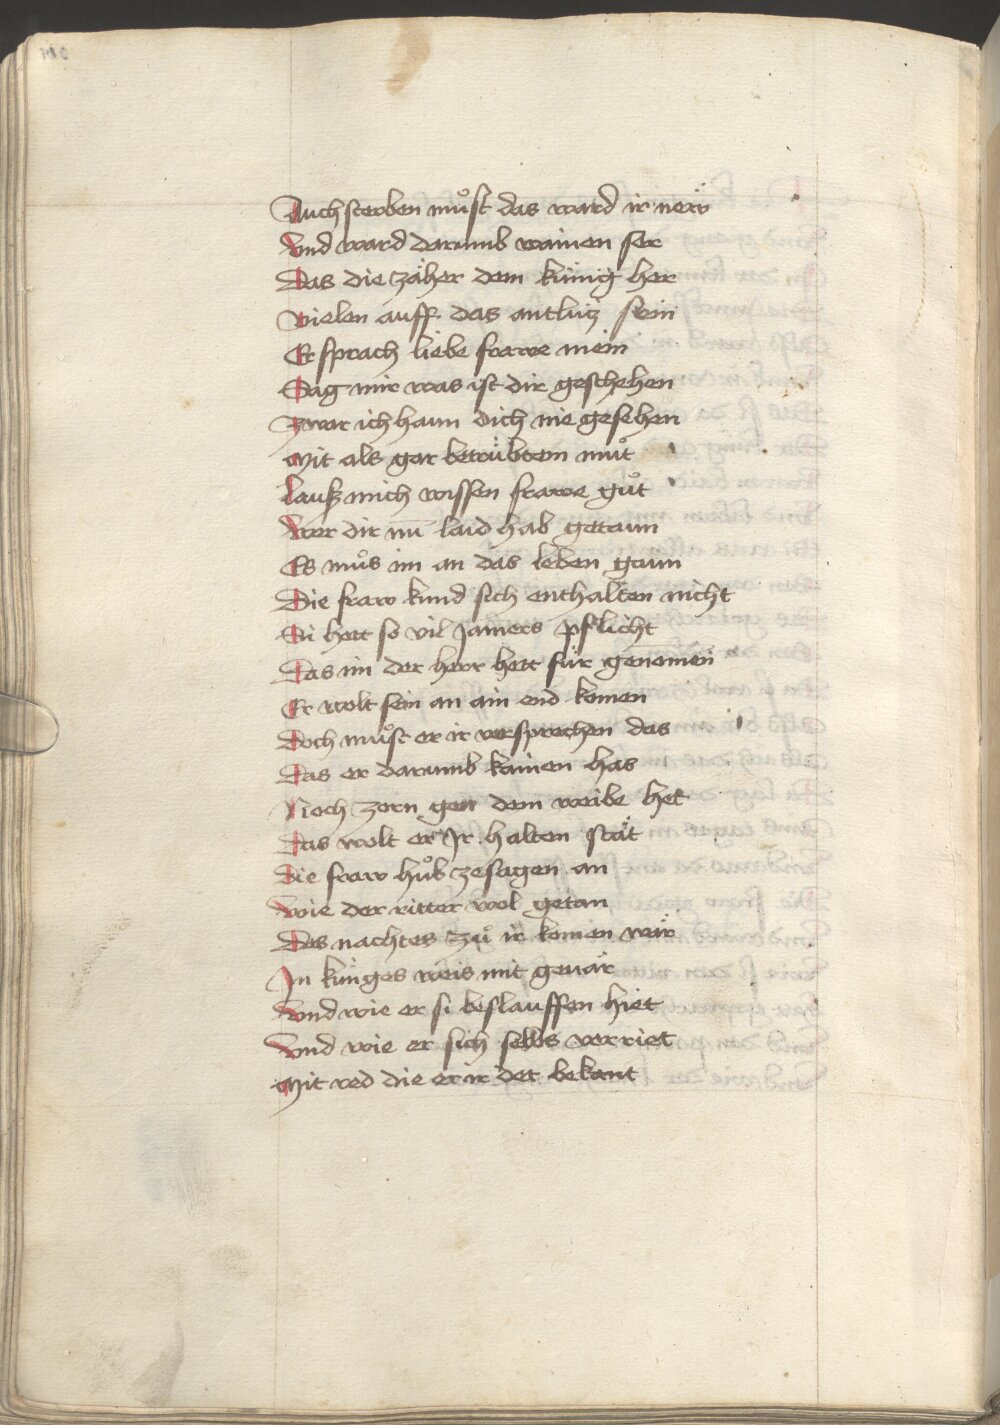 Auch sterben muͦst das ward ir new̎
Vnd ward darumb wainen ser
Das die zäher dem künig her
Vielen auff das antlutz sein
Er sprach liebe frawe mein
Sag mir was ist dir geschehen
Zwar ich haun dich nie gesehen
Mit als gar betrübtem muͦt
Lauß mich wissen frawe guͦt
Wer dir nū laid hab getaun
Es muͦs im an das leben gaun
Die fraw kund sich enthalten nicht
Si hett so vil Jamers pflicht
Das im der herr hett für genomen
Er wolt sein an ain end komen
Doch muͦst er ir versprechen das
Das er darumb kainen has
Noch zorn gen dem weibe het
Das wolt er Jr halten stät
Die fraw huͦb ze sagen an
Wie der ritter wol getan
Des nachtes zuͦ ir komen wär
In künges weis mit geuär
Vnd wie er si beslauffen hiet
Vnd wie er sich selbs verriet
Mit red die er ir det bekant